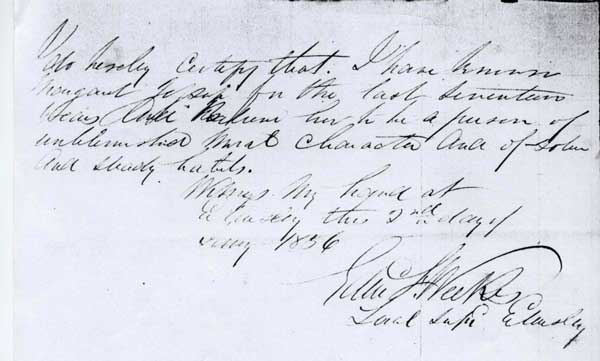 I do hereby certify that. I have known
Margaret for the last seventeen
Years And Believe her to be a person of
unblemished Moral Character And of sober
And steady habits.
Witness My hand at
Elmsley this 2nd day of
1856
Local Supt Elmsley